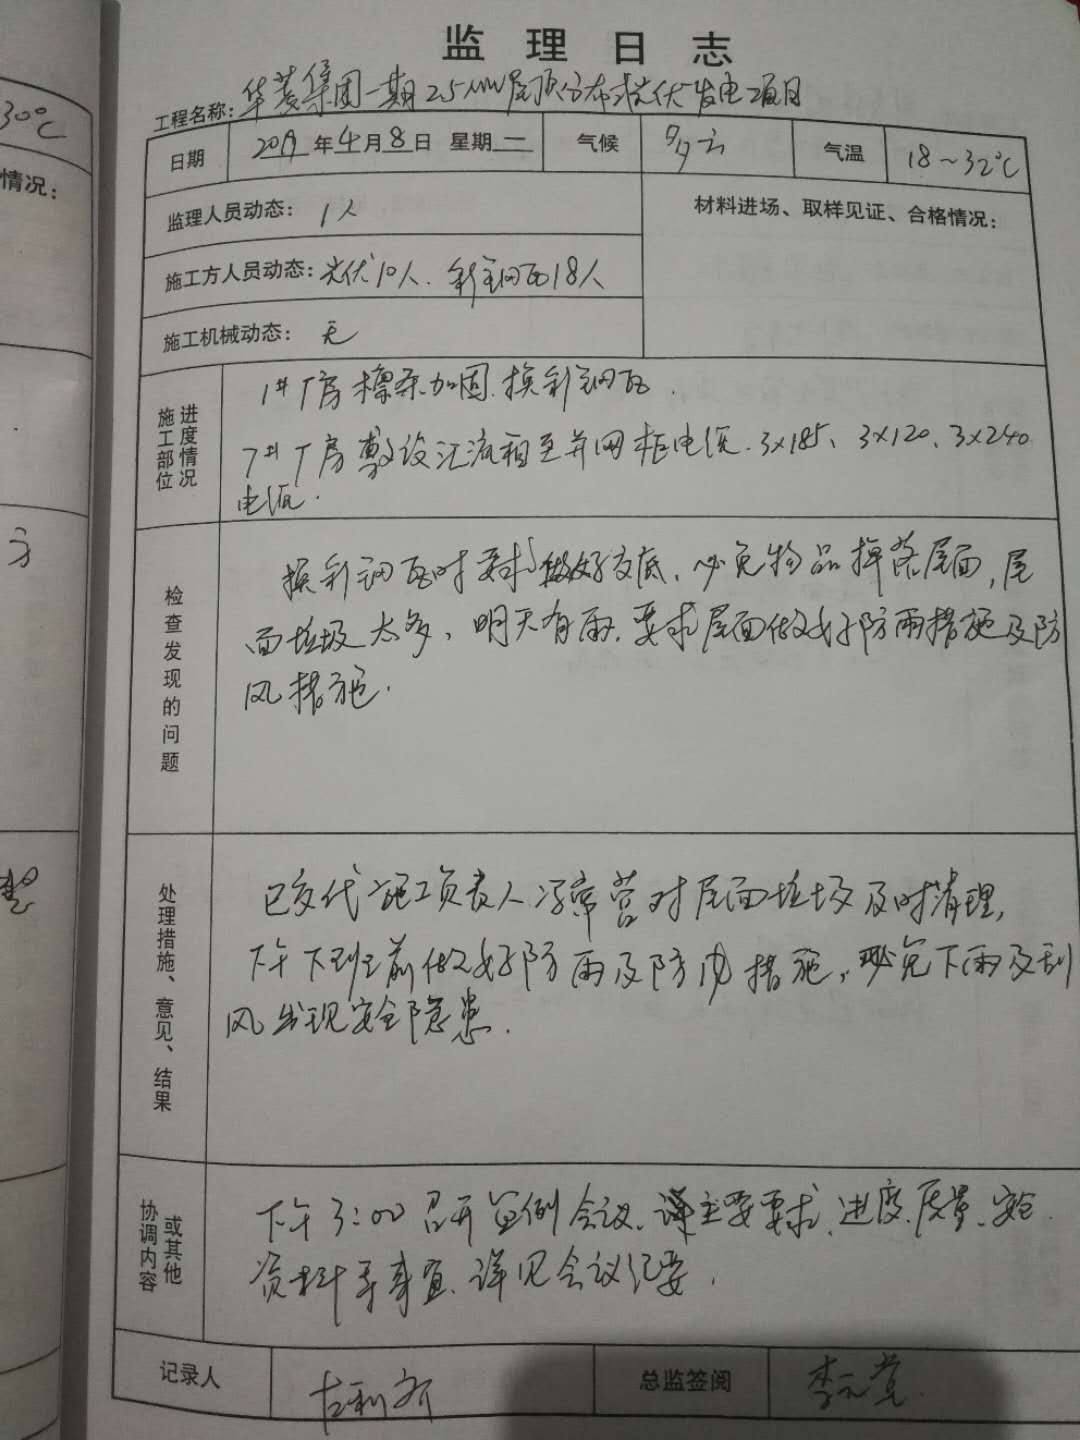 监理日志
工程名称：华菱集团一期25MW屋顶分布式光伏发电项目
日期 2019年4月8日 星期一 气候 多云 气温 18~32℃
监理人员动态：1人
材料进场、取样见证、合格情况：
施工方人员动态：光伏10人、彩钢瓦18人
施工机械动态：无
施工部位进度情况
1#厂房檩条加固、换彩钢瓦.
7#厂房敷设汇流箱至并网柜电缆、3×185、3×120、3×240
电缆.
检查发现的问题
换彩钢瓦时要求做好交底、必免物品掉落屋面，屋
面垃圾太多，明天有雨、要求屋面做好防雨措施及防
风措施.
处理措施、意见、结果
已交代施工负责人 对屋面垃圾及时清理,
下午下班前做好防雨及防风措施，必免下雨及刮
风出现安全隐患.
协调内容或其他
下午3:00召开监例会议、主要要求、进度、质量、安全、
资料等事宜、详见会议纪要，
记录人
总监签阅
30℃
情况：